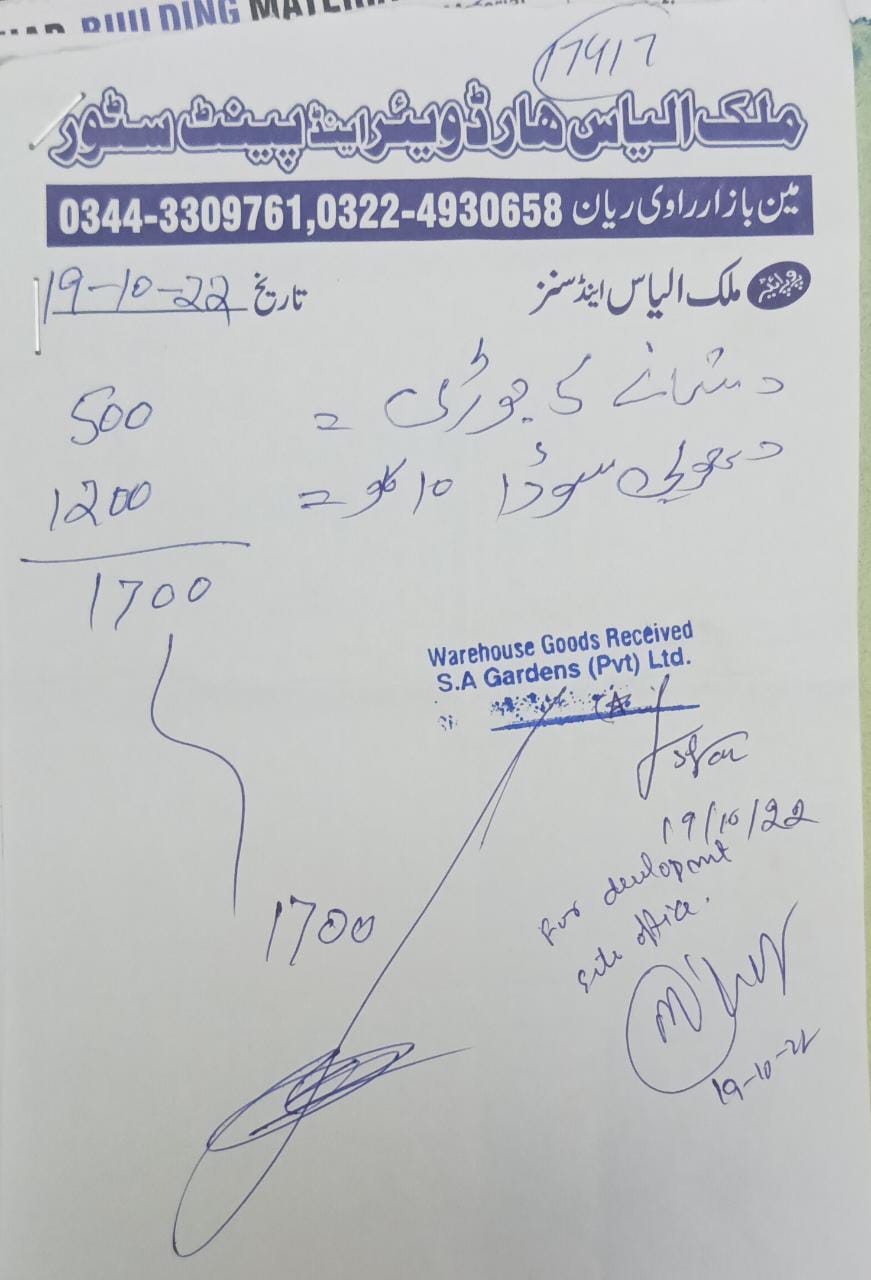 BUILDING MATERI
17417
ملک الیاس ہارڈویئر اینڈ پینٹ سٹور
مین بازار راوی ریان 0322-4930658,0344-3309761
پروپرائیٹر ملک الیاس اینڈ سنز تاریخ 19-10-22
دستانے کی جوڑی = 500
دھوبی سوڈا 10 کلو = 1200
1700
Warehouse Goods Received
S.A Gardens (Pvt) Ltd.
19/10/22
For development
site office.
1700
19-10-22